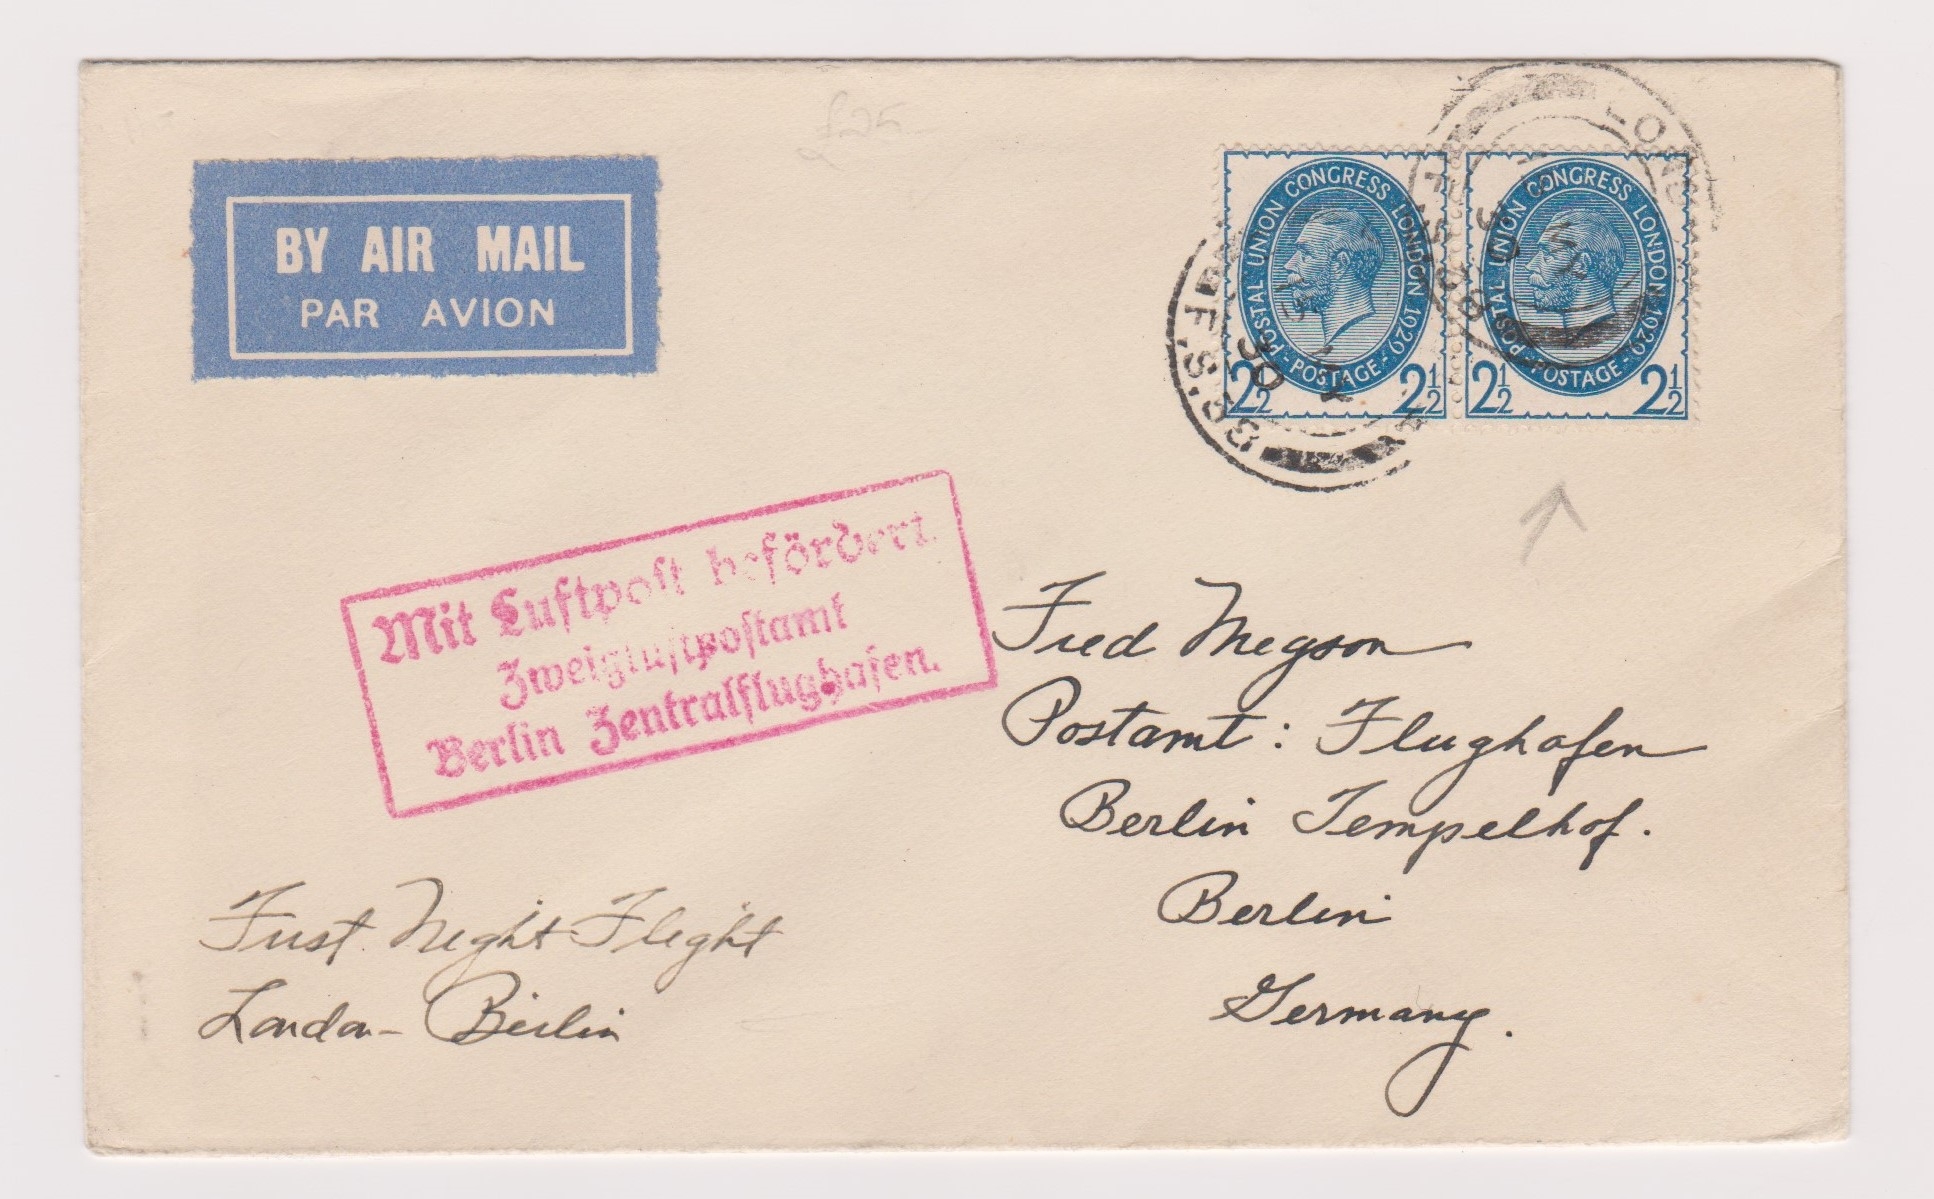 £25
BY AIR MAIL
PAR AVION
POSTAL UNION CONGRESS LONDON 1929
- POSTAGE -
2½ 2½
POSTAL UNION CONGRESS LONDON 1929
- POSTAGE -
2½ 2½
LOND
F.S.
30
F.S.
30
Mit Luftpost befördert.
Zweigluftpostamt
Berlin Zentralflughafen.
Fred Megson
Postamt: Flughafen
Berlin Tempelhof.
Berlin
Germany.
First Night Flight
London - Berlin